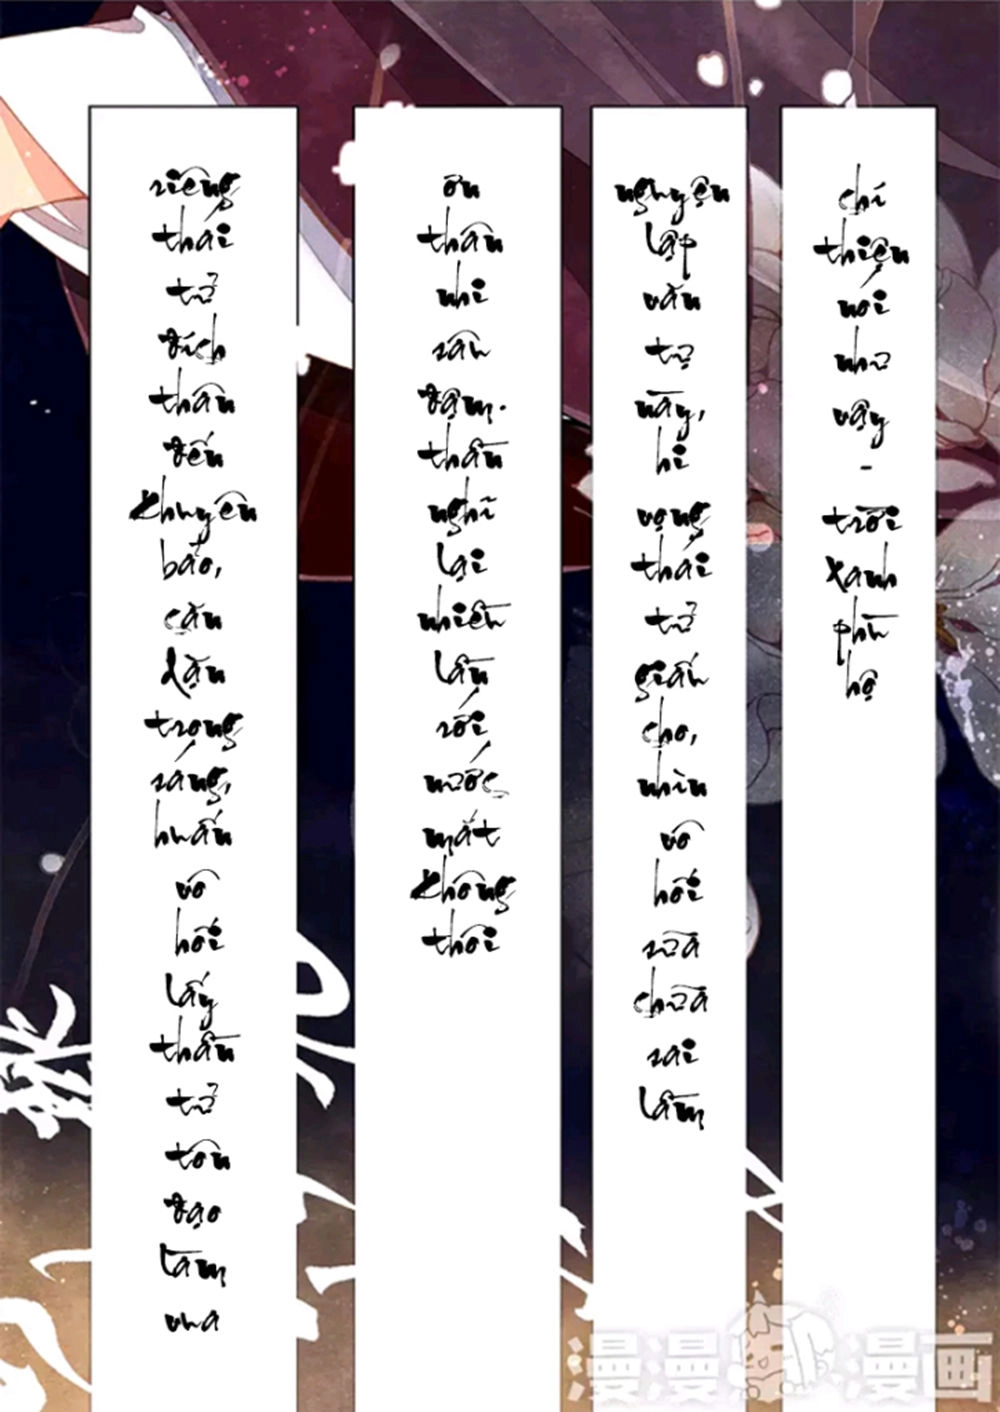 riêng thái tử đích thân đến khuyên bảo, căn dặn trọng sáng, huấn vô hối lấy thần tử tôn đạo làm vua
ôn thân nhi sân đậm. thần nghĩ lại nhiều lần rồi nước mắt không thôi
nguyện lập văn tự này, hi vọng thái tử giấn cho, nhìn vô hối sữa chữa sai lầm
chí thiện nói như vậy - trời xanh phù hộ
漫漫漫画